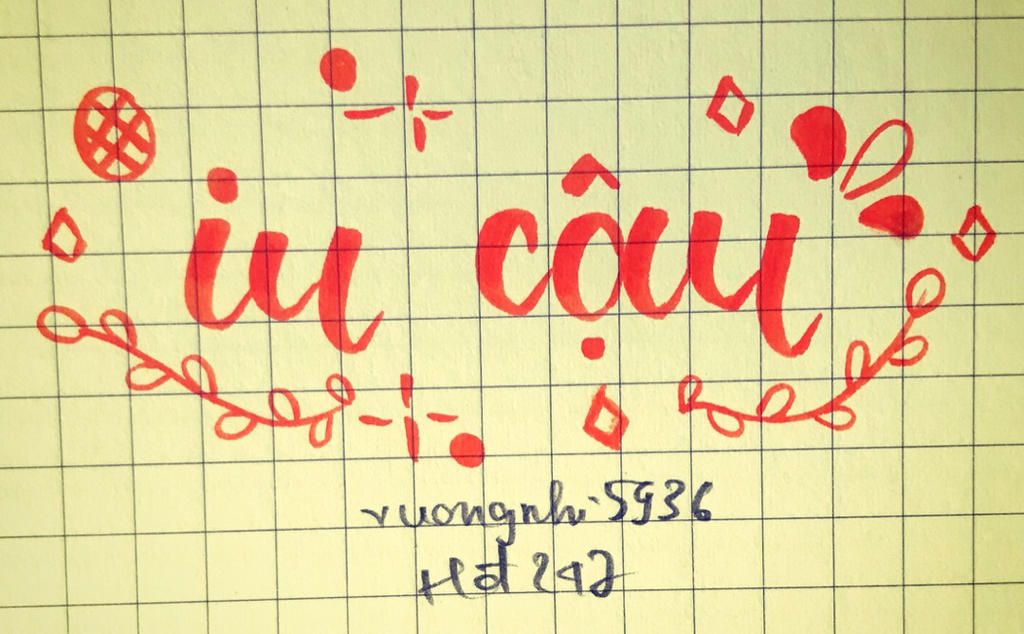 iu cậu
vuongnhi.5936
Hd247